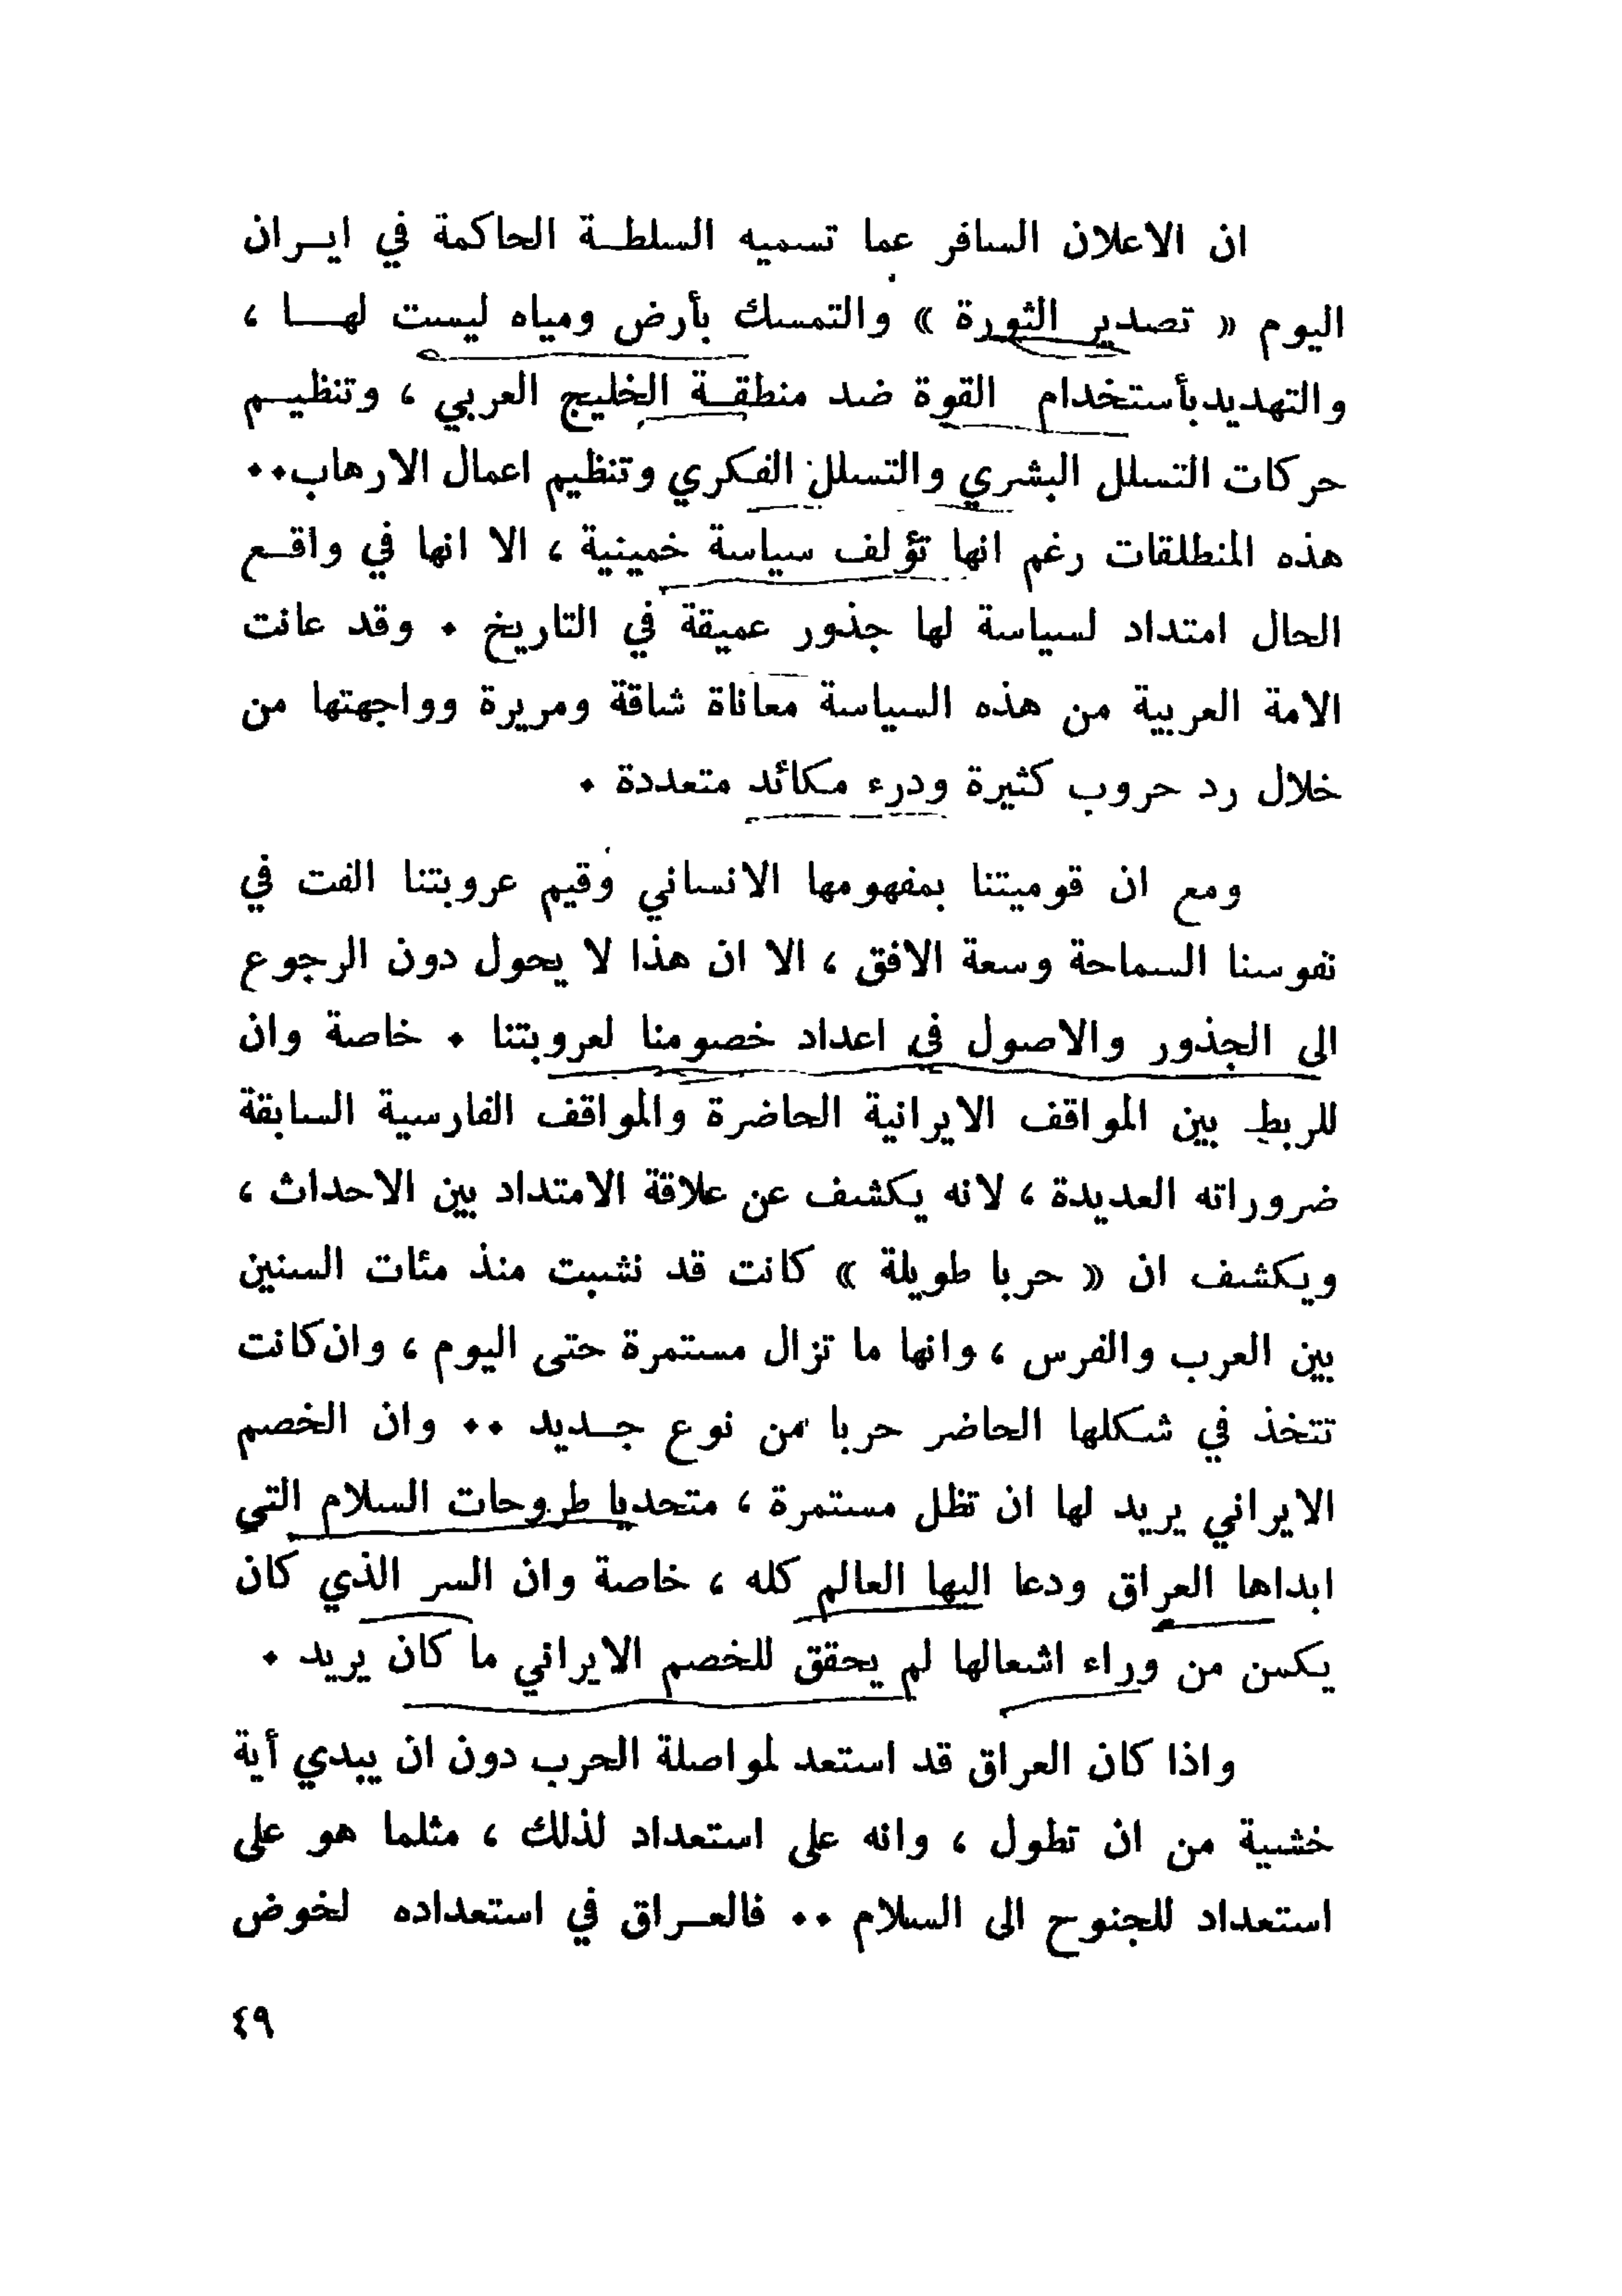 ان الاعلان السافر عما تسميه السلطة الحاكمة في ايران
اليوم « تصدير الثورة » والتمسك بأرض ومياه ليست لها ،
والتهديد بأستخدام القوة ضد منطقة الخليج العربي ، وتنظيم
حركات التسلل البشري والتسلل الفكري وتنظيم اعمال الارهاب..
هذه المنطلقات رغم انها تؤلف سياسة خمينية ، الا انها في واقع
الحال امتداد لسياسة لها جذور عميقة في التاريخ . وقد عانت
الامة العربية من هذه السياسة معاناة شاقة ومريرة وواجهتها من
خلال رد حروب كثيرة ودرء مكائد متعددة .
ومع ان قوميتنا بمفهومها الانساني وقيم عروبتنا الفت في
نفوسنا السماحة وسعة الافق ، الا ان هذا لا يحول دون الرجوع
الى الجذور والاصول في اعداد خصومنا لعروبتنا . خاصة وان
للربط بين المواقف الايرانية الحاضرة والمواقف الفارسية السابقة
ضروراته العديدة ، لانه يكشف عن علاقة الامتداد بين الاحداث ،
ويكشف ان « حربا طويلة » كانت قد نشبت منذ مئات السنين
بين العرب والفرس ، وانها ما تزال مستمرة حتى اليوم ، وان كانت
تتخذ في شكلها الحاضر حربا من نوع جديد .. وان الخصم
الايراني يريد لها ان تظل مستمرة ، متحديا طروحات السلام التي
ابداها العراق ودعا اليها العالم كله ، خاصة وان السر الذي كان
يكمن من وراء اشعالها لم يحقق للخصم الايراني ما كان يريد .
واذا كان العراق قد استعد لمواصلة الحرب دون ان يبدي أية
خشية من ان تطول ، وانه على استعداد لذلك ، مثلما هو على
استعداد للجنوح الى السلام .. فالعراق في استعداده لخوض
٤٩